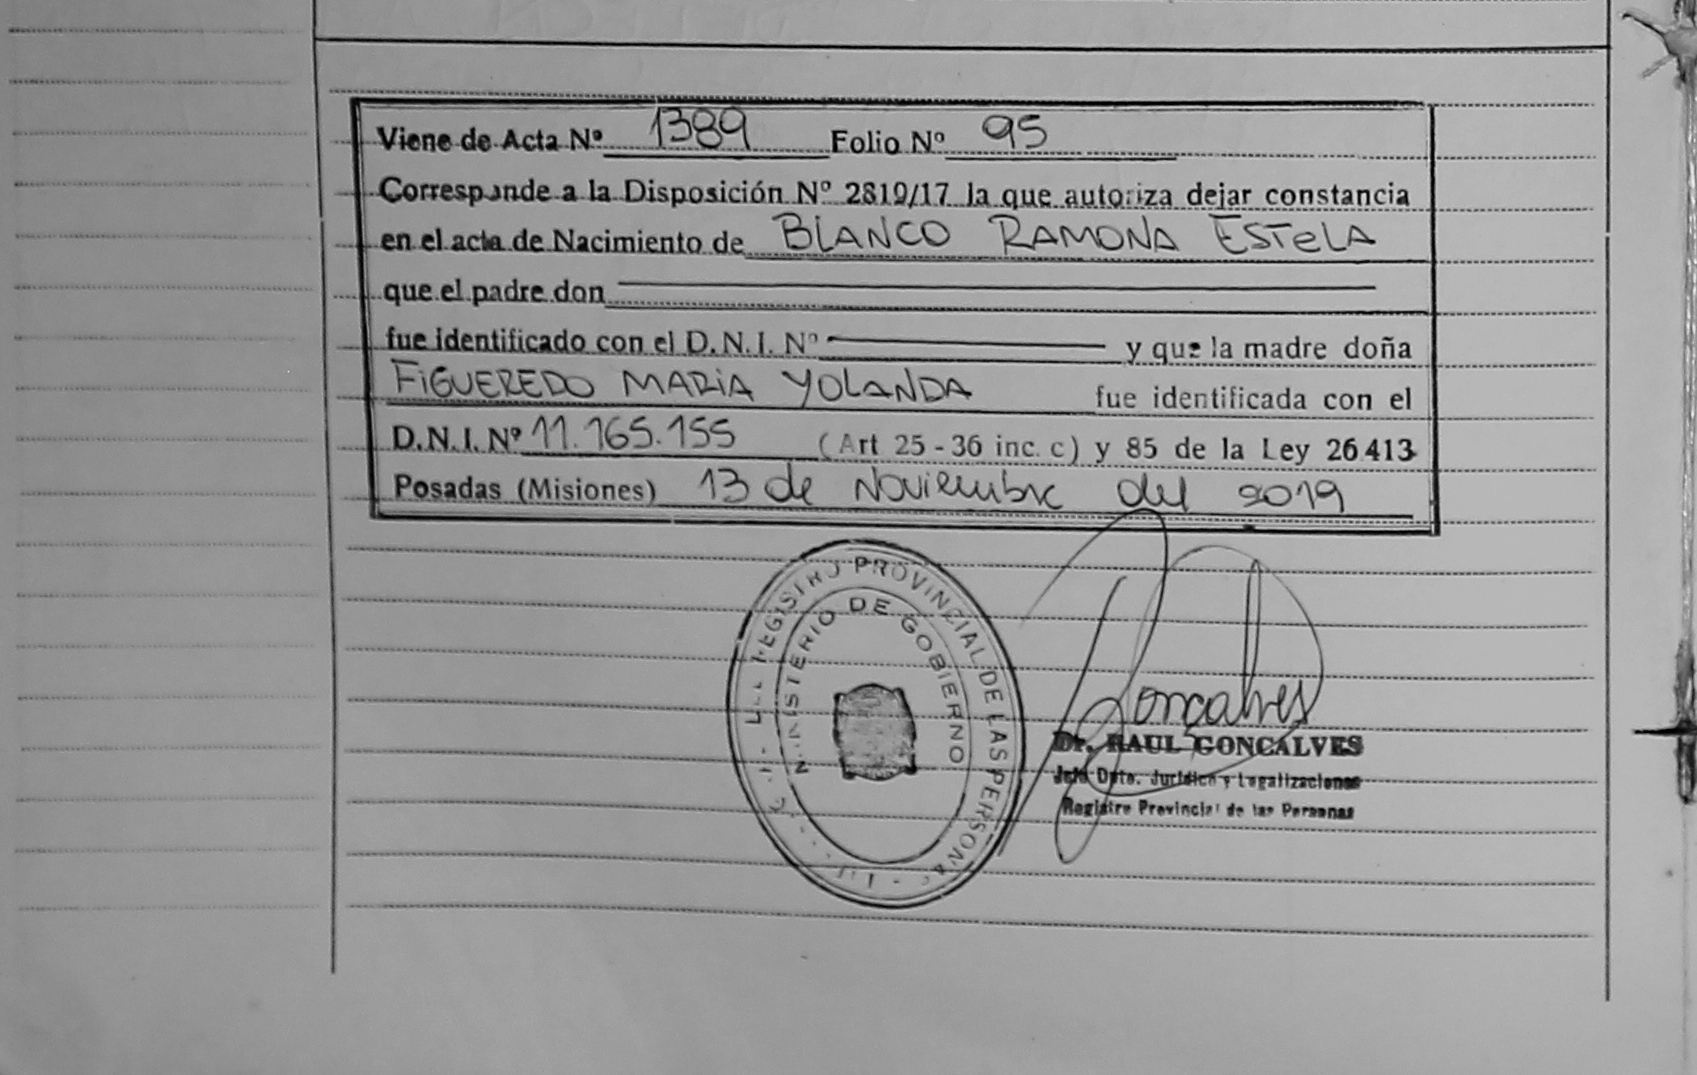 Viene de Acta Nº 1389 Folio Nº 95
Corresponde a la Disposición Nº 2819/17 la que autoriza dejar constancia
en el acta de Nacimiento de BLANCO RAMONA ESTELA
que el padre don
fue identificado con el D.N.I. Nº y que la madre doña
FIGUEREDO MARIA YOLANDA fue identificada con el
D.N.I. Nº 11.165.155 (Art 25 - 36 inc. c) y 85 de la Ley 26.413
Posadas (Misiones) 13 de Noviembre del 2019
REGISTRO PROVINCIAL DE LAS PERSONAS
MINISTERIO DE GOBIERNO
Goncalves
Dr. RAUL GONCALVES
Jefe Dpto. Jurídico y Legalizaciones
Registro Provincial de las Personas